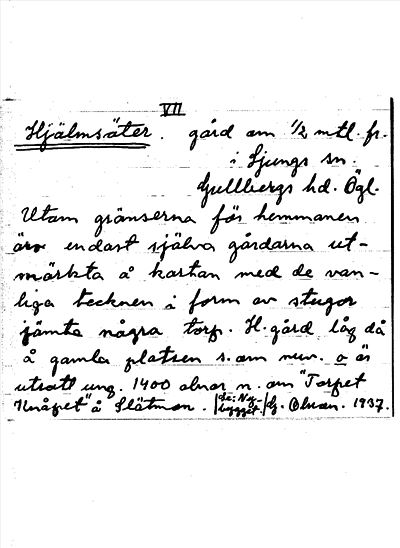 VII
Hjälmsäter. gård om 1/2 mtl. fr.
i Ljungs sn.
Gullbergs hd. Ögl.
Utom gränserna för hemmanen
äro endast själva gårdarna ut-
märkta å kartan med de van-
liga tecknen i form av stugor
jämte några torp. H. gård låg då
å gamla platsen s. om nuv. o är
utsatt ung. 1400 alnar n. om "Torpet
Knäpet" å Slätmon. G. Olsson. 1937.